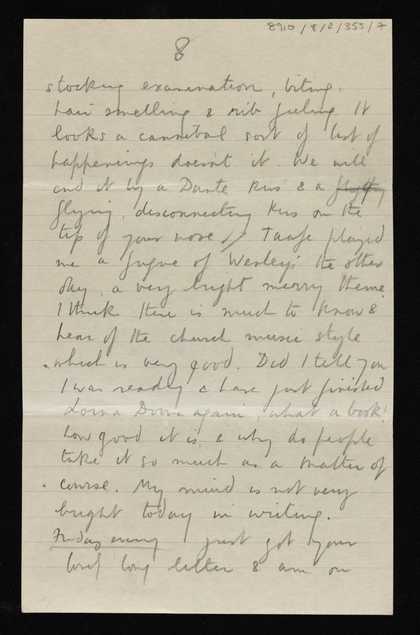 8910/8/2/353/7
8
stocking examination, biting,
hair smelling & rib feeling. It
looks a cannibal sort of list of
happenings doesn't it. We will
end it by a Dante kiss & a
flying, disconnecting kiss on the
tip of your nose // Taafe played
me a fugue of Wesley's the other
day, a very bright merry theme.
I think there is much to know &
hear of the church music style
which is very good. Did I tell you
I was reading & have just finished
Lorna Doone again, what a book!
how good it is, & why do people
take it so much as a matter of
course. My mind is not very
bright today in writing.
Friday evening I just got your
long letter & am on